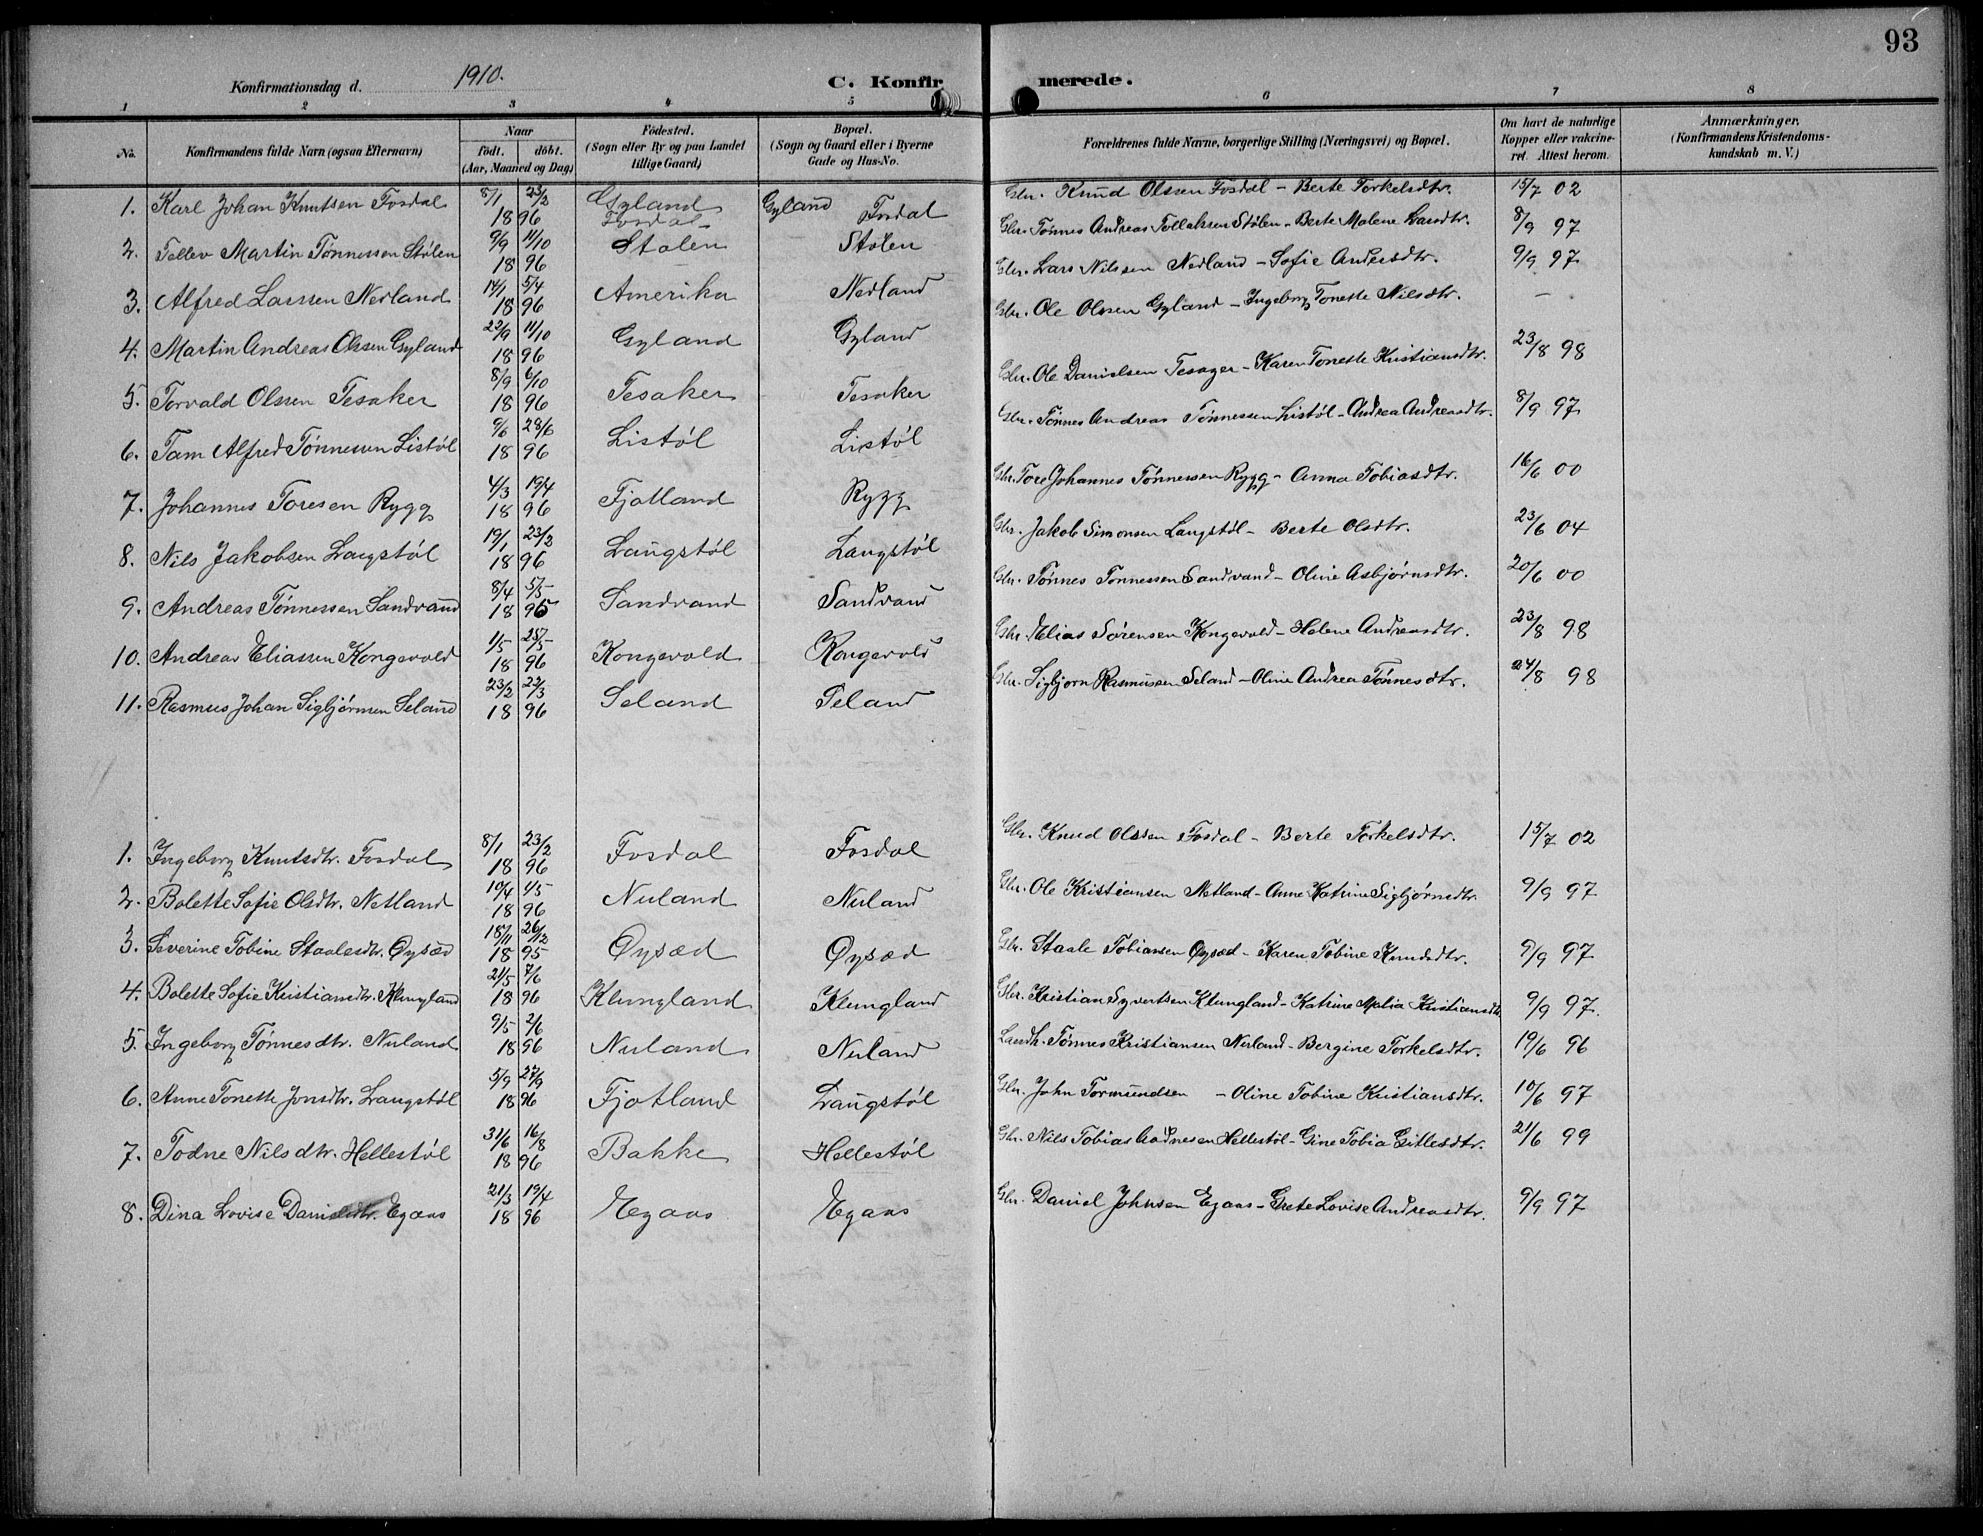 93
Konfirmationsdag d. 1910.
C. Konfirmerede.
1 2 3 4 5 6 7 8
No. Konfirmandens fulde Navn (ogsaa Efternavn) Naar født. døbt. (Aar, Maaned og Dag) Fødested. (Sogn eller By og paa Landet tillige Gaard) Bopæl. (Sogn og Gaard eller i Byerne Gade og Hus-No. Forældrenes fulde Navne, borgerlige Stilling (Næringsvei) og Bopæl. Om havt de naturlige Kopper eller vakcineret. Attest herom. Anmærkninger. (Konfirmandens Kristendomskundskab m. V.)
1. Karl Johan Knutsen Fosdal 8/1 23/2 1896 Gyland Fosdal Gyland Fosdal Gbr. Knud Olssen Fosdal - Berte Torkelsdtr. 15/7 02
2. Tellev Martin Tønnessen Stølen 9/9 11/10 1896 Stølen Stølen Gbr. Tønnes Andreas Tollaksen Stølen - Berte Malene Larsdtr. 8/9 97
3. Alfred Larssen Nedland 14/1 5/4 1896 Amerika Nedland Gbr. Lars Nilssen Nedland - Sofie Andersdtr. 9/9 97
4. Martin Andreas Olssen Gyland 22/9 11/10 1896 Gyland Gyland Gbr. Ole Olssen Gyland - Ingeborg Tonette Nilsdtr. -
5. Torvald Olssen Tesaker 8/9 6/10 1896 Tesaker Tesaker Gbr. Ole Danielsen Tesager - Karen Tonette Kristiansdtr. 23/8 98
6. Tam Alfred Tønnessen Listøl 9/6 28/6 1896 Listøl Listøl Gbr. Tønnes Andreas Tønnessen Listøl - Andrea Andreasdtr. 8/9 97
7. Johannes Toresen Rygg 4/3 19/4 1896 Fjotland Rygg Gbr. Tore Johannes Tønnessen Rygg - Anna Tobiasdtr. 16/6 00
8. Nils Jakobsen Langstøl 19/1 23/2 1896 Langstøl Langstøl Gbr. Jakob Simonsen Langstøl - Berte Olsdtr. 23/6 04
9. Andreas Tønnessen Sandvand 8/4 5/5 1895 Sandvand Sandvand Gbr. Tønnes Tønnessen Sandvand - Oline Asbjørnsdtr. 20/6 00
10. Andreas Eliassen Kongevold 1/5 25/5 1896 Kongevold Kongevold Gbr. Elias Sørensen Kongevold - Helene Andreasdtr. 23/8 98
11. Rasmus Johan Sigbjørnsen Seland 23/2 22/3 1896 Seland Seland Gbr. Sigbjørn Rasmussen Seland - Oline Andrea Tønnesdtr. 24/8 98
1. Ingeborg Knutsdtr. Fosdal 8/1 23/2 1896 Fosdal Fosdal Gbr. Knud Olssen Fosdal - Berte Torkelsdtr. 15/7 02
2. Bolette Sofie Olsdtr. Netland 19/4 4/5 1896 Nuland Nuland Gbr. Ole Kristiansen Netland - Anne Katrine Sigbjørnsdtr. 9/9 97
3. Severine Tobine Staalesdtr. Øysæd 18/11 26/12 1895 Øysæd Øysæd Gbr. Staale Tobiansen Øysæd - Karen Tobine Knudsdtr. 9/9 97
4. Bolette Sofie Kristiansdtr. Klungland 21/5 7/6 1896 Klungland Klungland Gbr. Kristian Syvertsen Klungland - Katrine Malia Kristiansdtr 9/9 97.
5. Ingeborg Tønnesdtr. Nuland 9/5 2/6 1896 Nuland Nuland Landh. Tønnes Kristiansen Nuland - Bergine Torkelsdtr. 19/6 96
6. Anne Tonette Jonsdtr. Langstøl 5/9 27/9 1896 Fjotland Langstøl Gbr. John Tormundsen - Oline Tobine Kristiansdtr. 10/6 97
7. Todne Nilsdtr. Hellestøl 31/6 16/8 1896 Bakke Hellestøl Gbr. Nils Tobias Aadnesen Hellestøl - Gine Tobia Gitlesdtr. 21/6 99
8. Dina Lovise Danielsdtr. Egaas 21/3 19/4 1896 Egaas Egaas Gbr. Daniel Johnsen Egaas - Grete Lovise Andreasdtr. 9/9 97